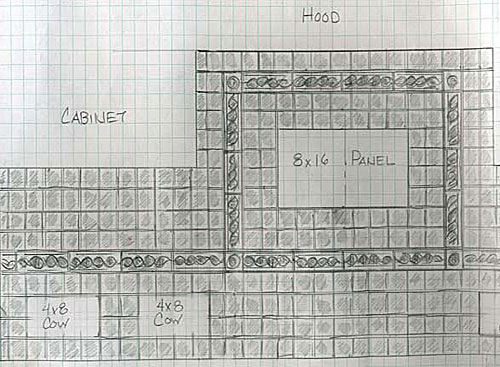 HOOD
CABINET
8x16 PANEL
4x8
COW
4x8
COW